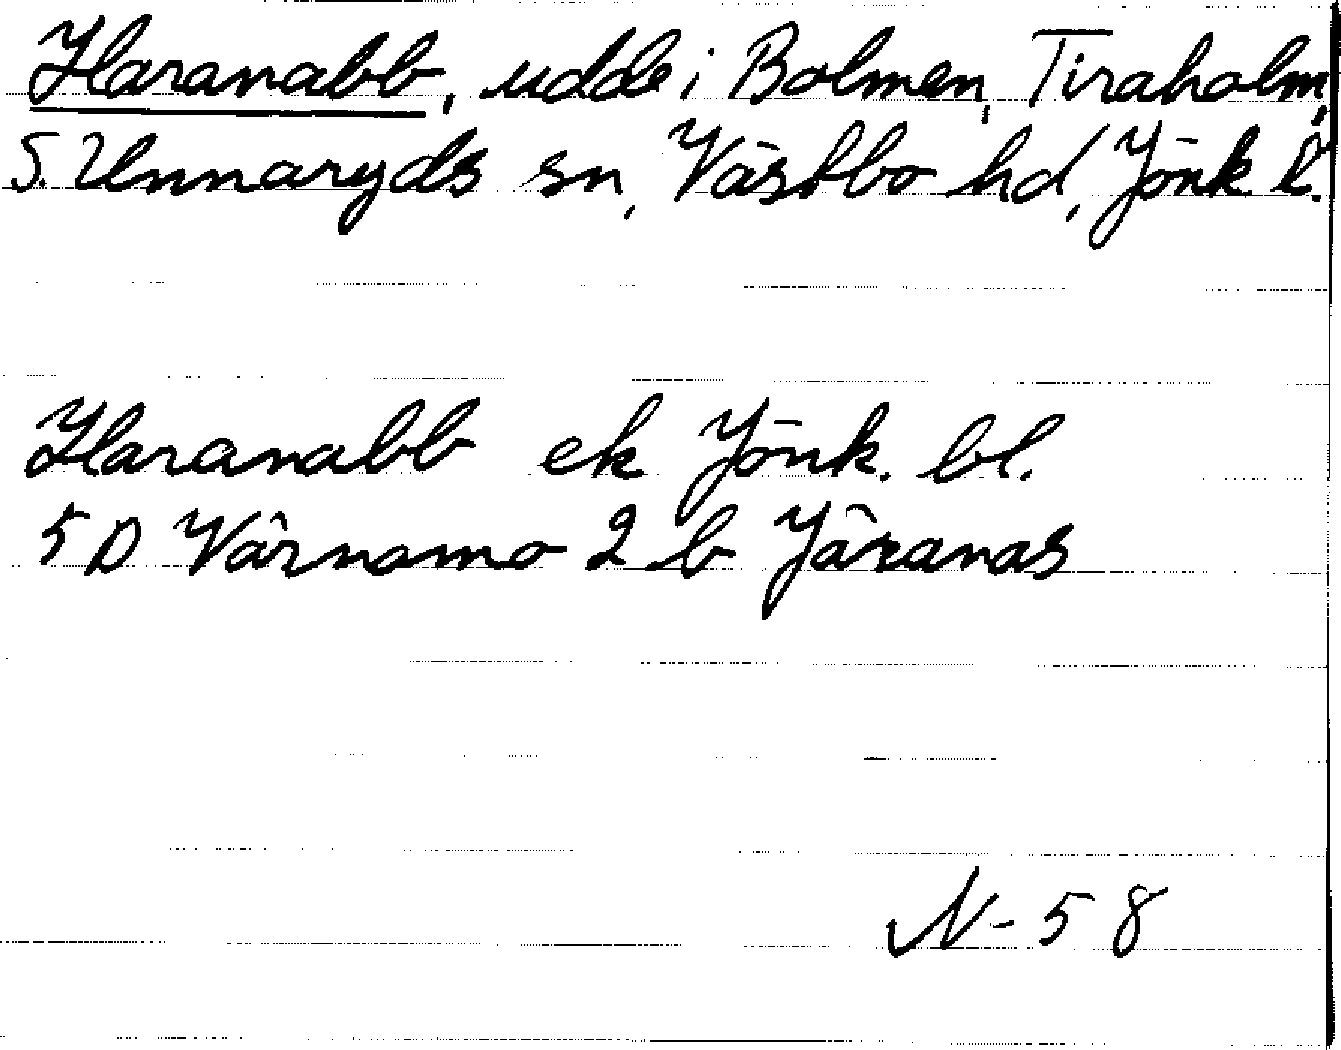 Haranabb, udde i Bolmen, Tiraholm,
S. Unnaryds sn, Västbo hd, Jönk l.
Haranabb ek Jönk. bl.
5 D Värnamo 2 b Järanäs
N-58